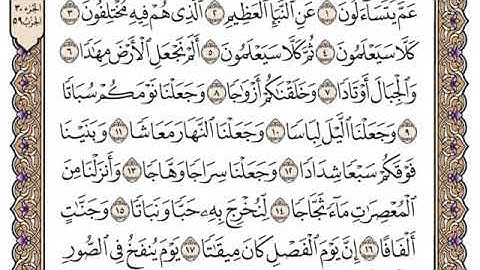 الجزء ٣٠
الحزب ٥٩
عَمَّ يَتَسَآءَلُونَ ١ عَنِ ٱلنَّبَإِ ٱلْعَظِيمِ ٢ ٱلَّذِى هُمْ فِيهِ مُخْتَلِفُونَ ٣
كَلَّا سَيَعْلَمُونَ ٤ ثُمَّ كَلَّا سَيَعْلَمُونَ ٥ أَلَمْ نَجْعَلِ ٱلْأَرْضَ مِهَٰدًا ٦
وَٱلْجِبَالَ أَوْتَادًا ٧ وَخَلَقْنَٰكُمْ أَزْوَٰجًا ٨ وَجَعَلْنَا نَوْمَكُمْ سُبَاتًا
٩ وَجَعَلْنَا ٱلَّيْلَ لِبَاسًا ١٠ وَجَعَلْنَا ٱلنَّهَارَ مَعَاشًا ١١ وَبَنَيْنَا
فَوْقَكُمْ سَبْعًا شِدَادًا ١٢ وَجَعَلْنَا سِرَاجًا وَهَّاجًا ١٣ وَأَنزَلْنَا مِنَ
ٱلْمُعْصِرَٰتِ مَآءً ثَجَّاجًا ١٤ لِّنُخْرِجَ بِهِۦ حَبًّا وَنَبَاتًا ١٥ وَجَنَّٰتٍ
أَلْفَافًا ١٦ إِنَّ يَوْمَ ٱلْفَصْلِ كَانَ مِيقَٰتًا ١٧ يَوْمَ يُنفَخُ فِى ٱلصُّورِ